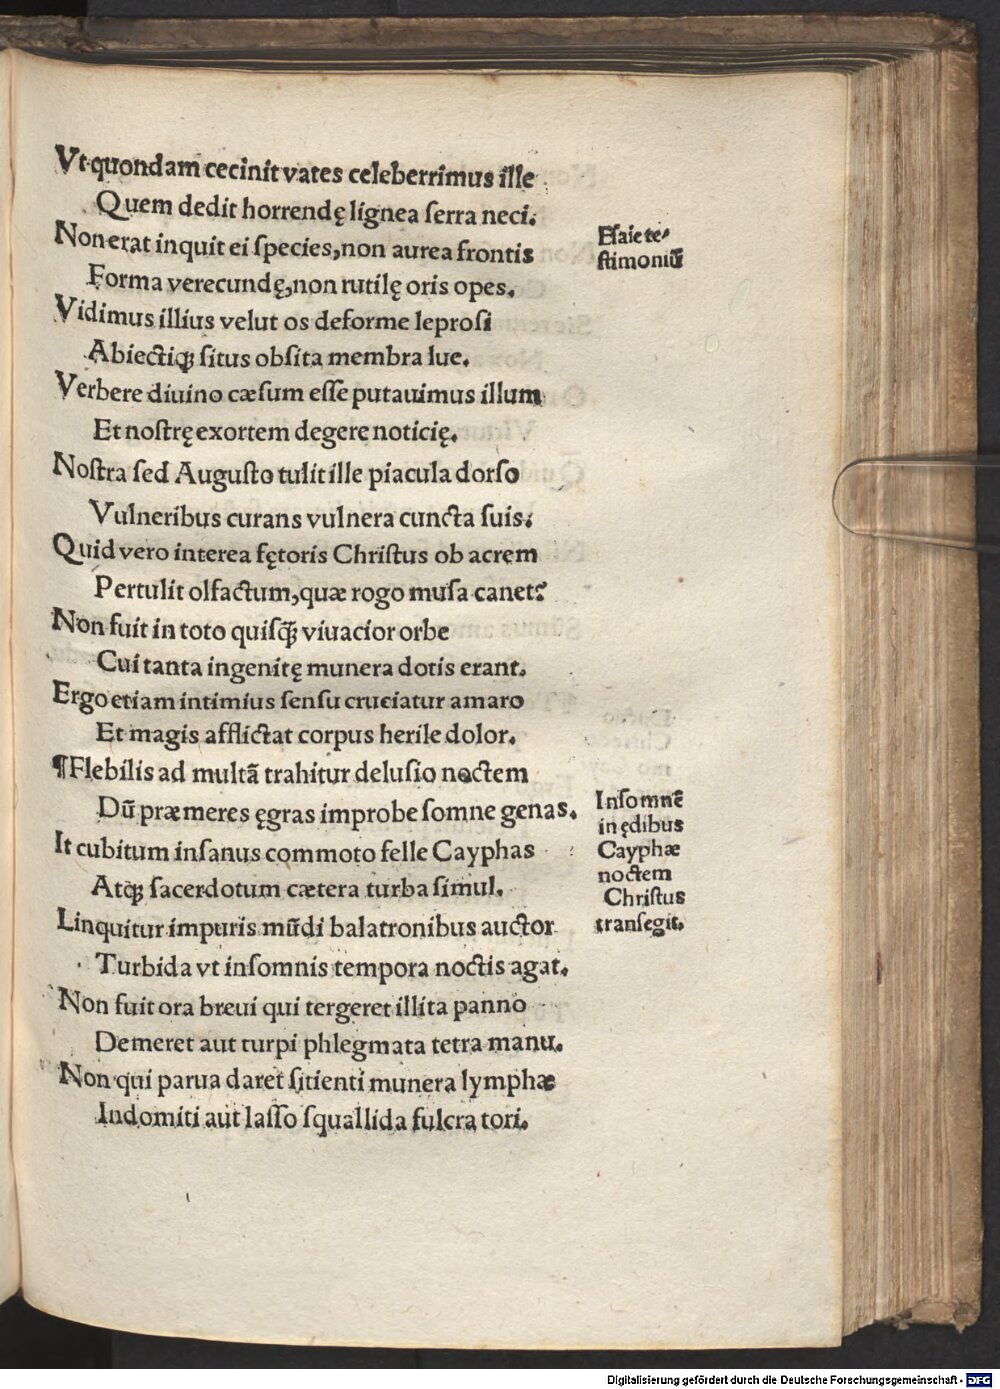 Vt quondam cecinit vates celeberrimus ille
Quem dedit horrendę lignea serra neci.
Non erat inquit ei species, non aurea frontis
Forma verecundę, non rutilę oris opes.
Vidimus illius velut os deforme leprosi
Abiectiqꝫ situs obsita membra lue.
Verbere diuino cæsum esse putauimus illum
Et nostrę exortem degere noticię.
Nostra sed Augusto tulit ille piacula dorso
Vulneribus curans vulnera cuncta suis.
Quid vero interea fętoris Christus ob acrem
Pertulit olfactum, quæ rogo musa canet?
Non fuit in toto quisq̃ viuacior orbe
Cui tanta ingenitę munera dotis erant.
Ergo etiam intimius sensu cruciatur amaro
Et magis afflictat corpus herile dolor.
¶Flebilis ad multã trahitur delusio noctem
Dũ præmeres ęgras improbe somne genas.
It cubitum insanus commoto felle Cayphas
Atqꝫ sacerdotum cætera turba simul.
Linquitur impuris mũdi balatronibus auctor
Turbida vt insomnis tempora noctis agat.
Non fuit ora breui qui tergeret illita panno
Demeret aut turpi phlegmata tetra manu.
Non qui parua daret sitienti munera lymphæ
Indomiti aut lasso squallida fulcra tori.
Esaie te-
stimoniũ
Insomnẽ
in ędibus
Cayphæ
noctem
Christus
transegit.
Digitalisierung gefördert durch die Deutsche Forschungsgemeinschaft - DFG